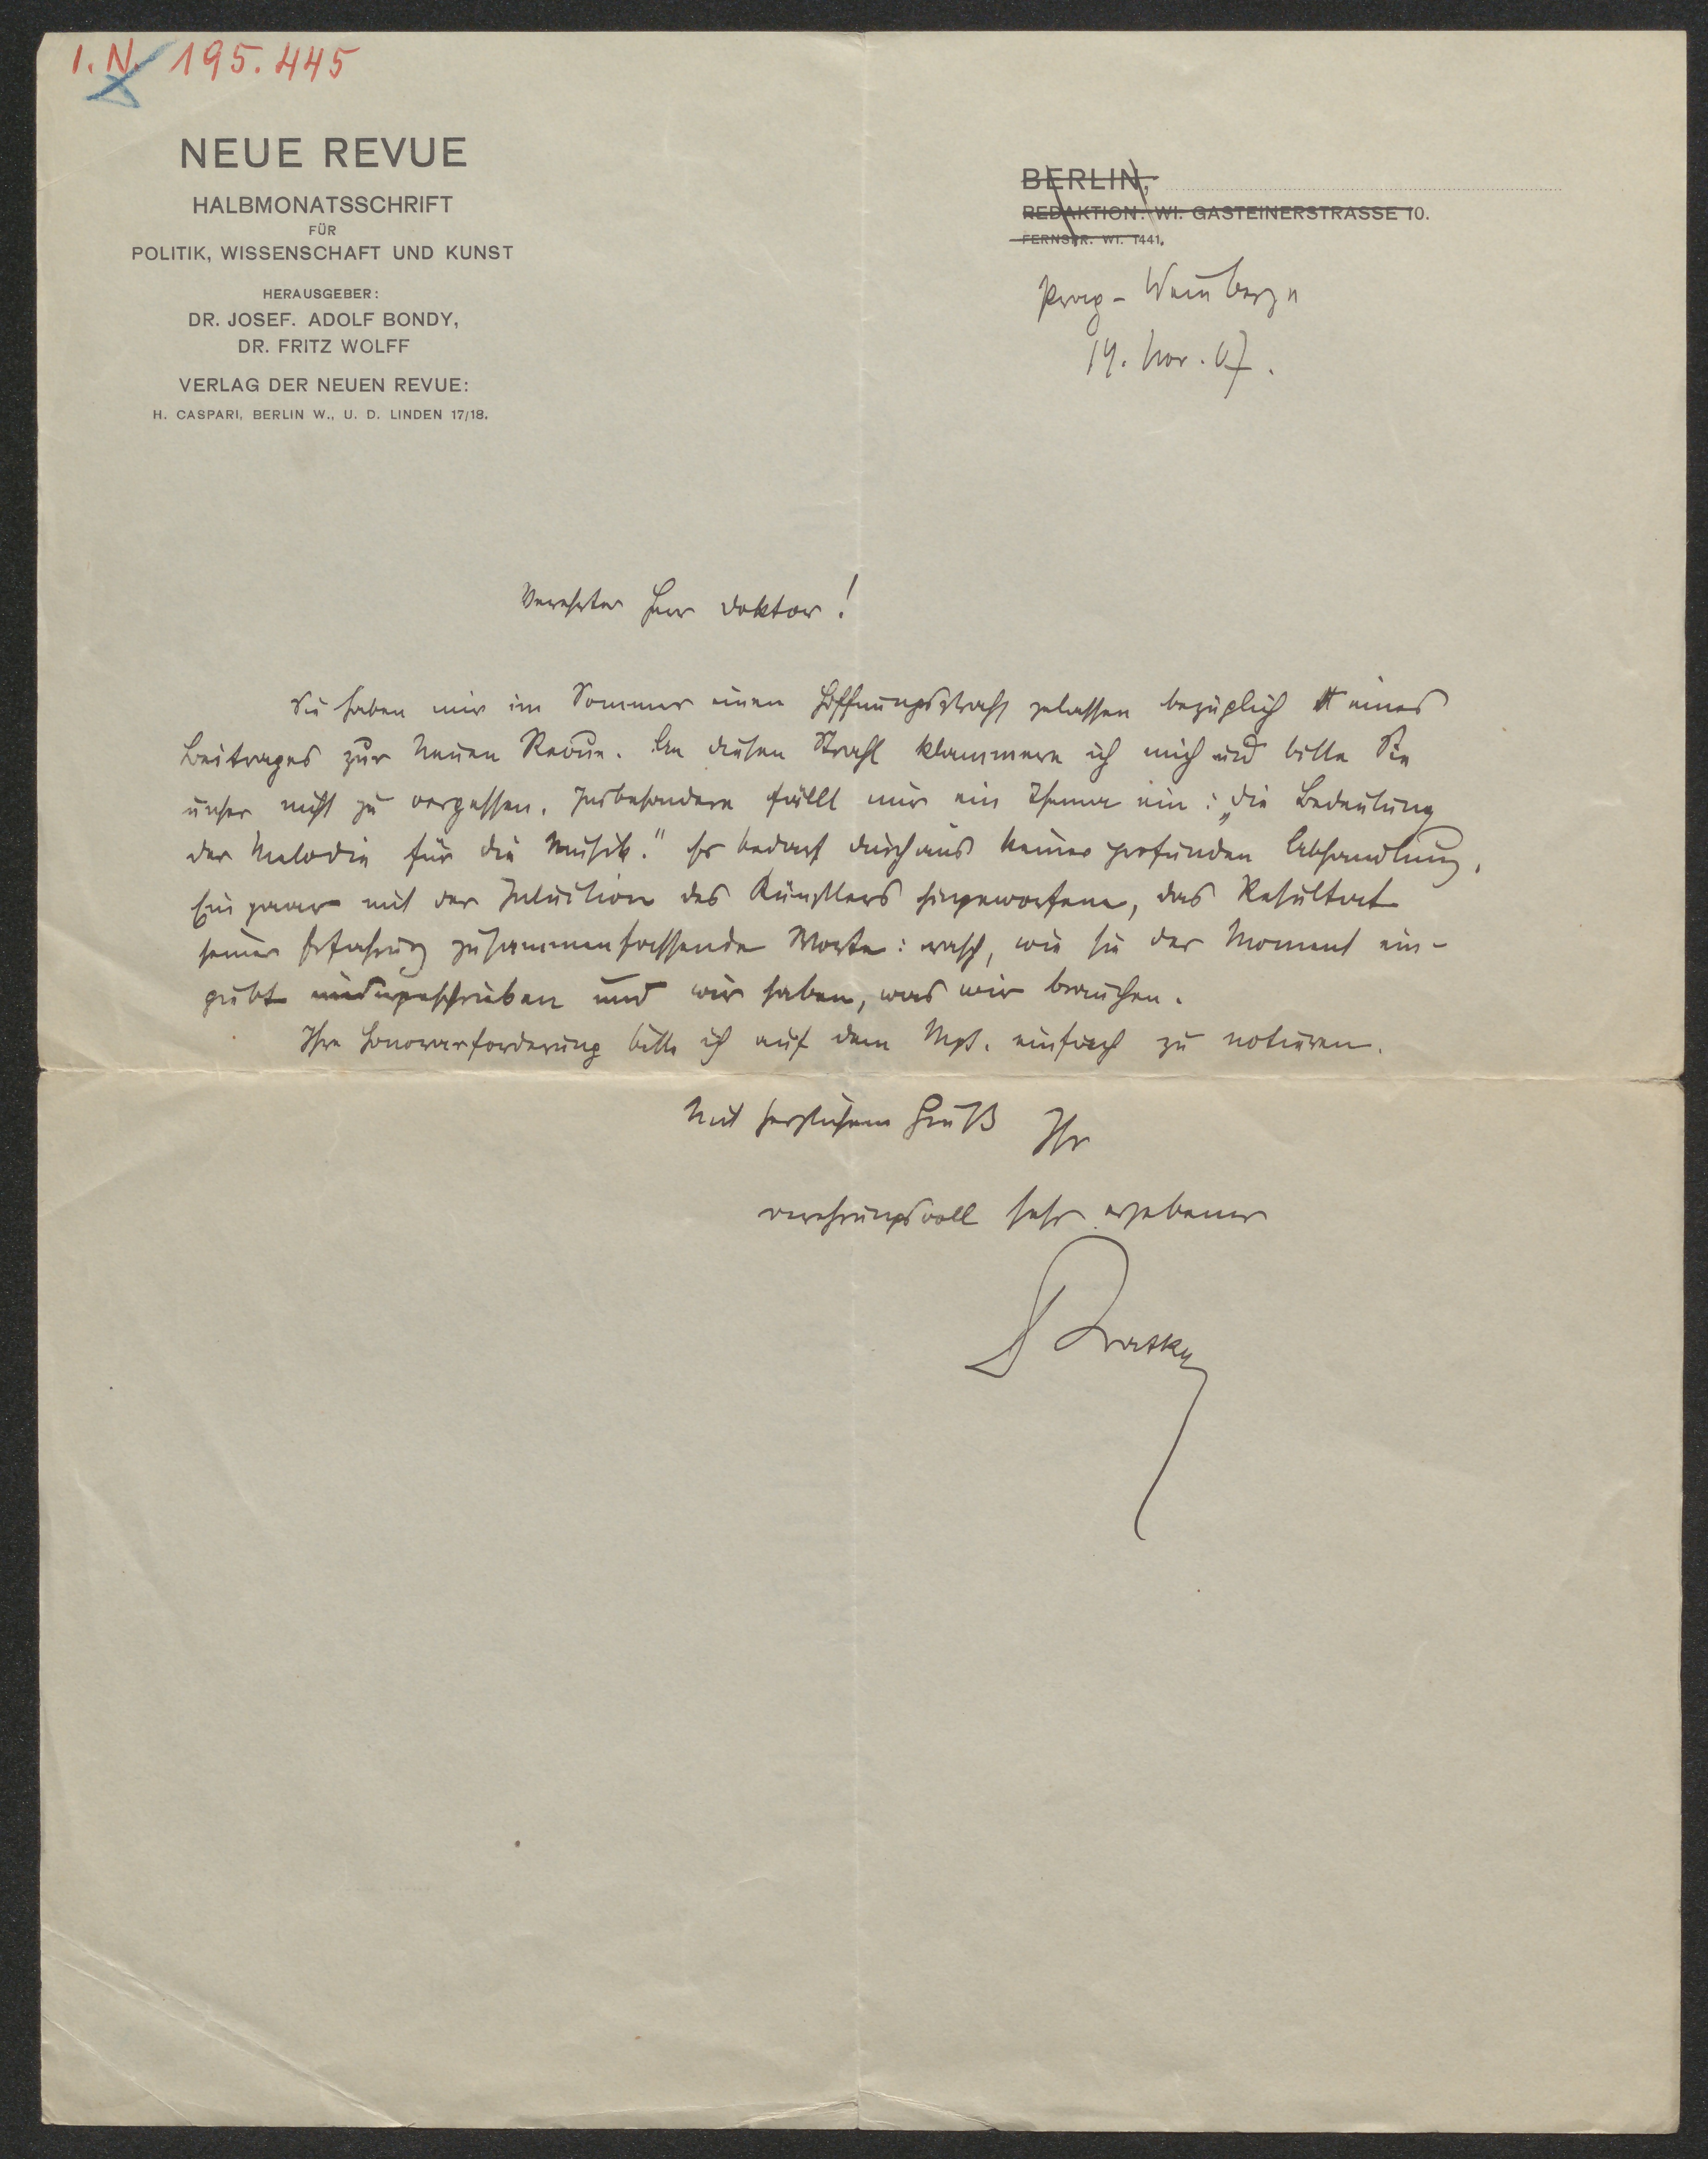 I. N. 195.445
NEUE REVUE
HALBMONATSSCHRIFT
FÜR
POLITIK, WISSENSCHAFT UND KUNST
HERAUSGEBER:
DR. JOSEF. ADOLF BONDY,
DR. FRITZ WOLFF
VERLAG DER NEUEN REVUE:
H. CASPARI, BERLIN W., U. D. LINDEN 17/18.
BERLIN,
REDAKTION: WI. GASTEINERSTRASSE 10.
FERNSPR. WI. 1441.
Prag - Weinberge
14. Nov. 07.
Verehrter Herr Doktor!
Sie haben mir im Sommer einen Hoffnungsstrahl gelassen bezüglich eines
Beitrages zur Neuen Revue. An diesen Strahl klammere ich mich und bitte Sie
unser nicht zu vergessen. Insbesondere fällt mir ein Thema ein: „Die Bedeutung
der Melodie für die Musik." Es bedarf durchaus keiner profunden Abhandlung.
Ein paar mit der Intuition des Künstlers hingeworfene, das Resultat
seiner Erfahrung zusammenfassende Worte: rasch, wie sie der Moment ein-
giebt niedergeschrieben und wir haben, was wir brauchen.
Ihre Honorarforderung bitte ich auf dem Mpt. einfach zu notieren.
Mit herzlichem Gruß Ihr
verehrungsvoll sehr ergebener